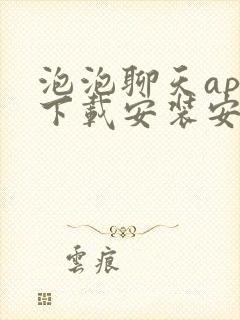 泡泡聊天ap
下載安裝安
雲痕